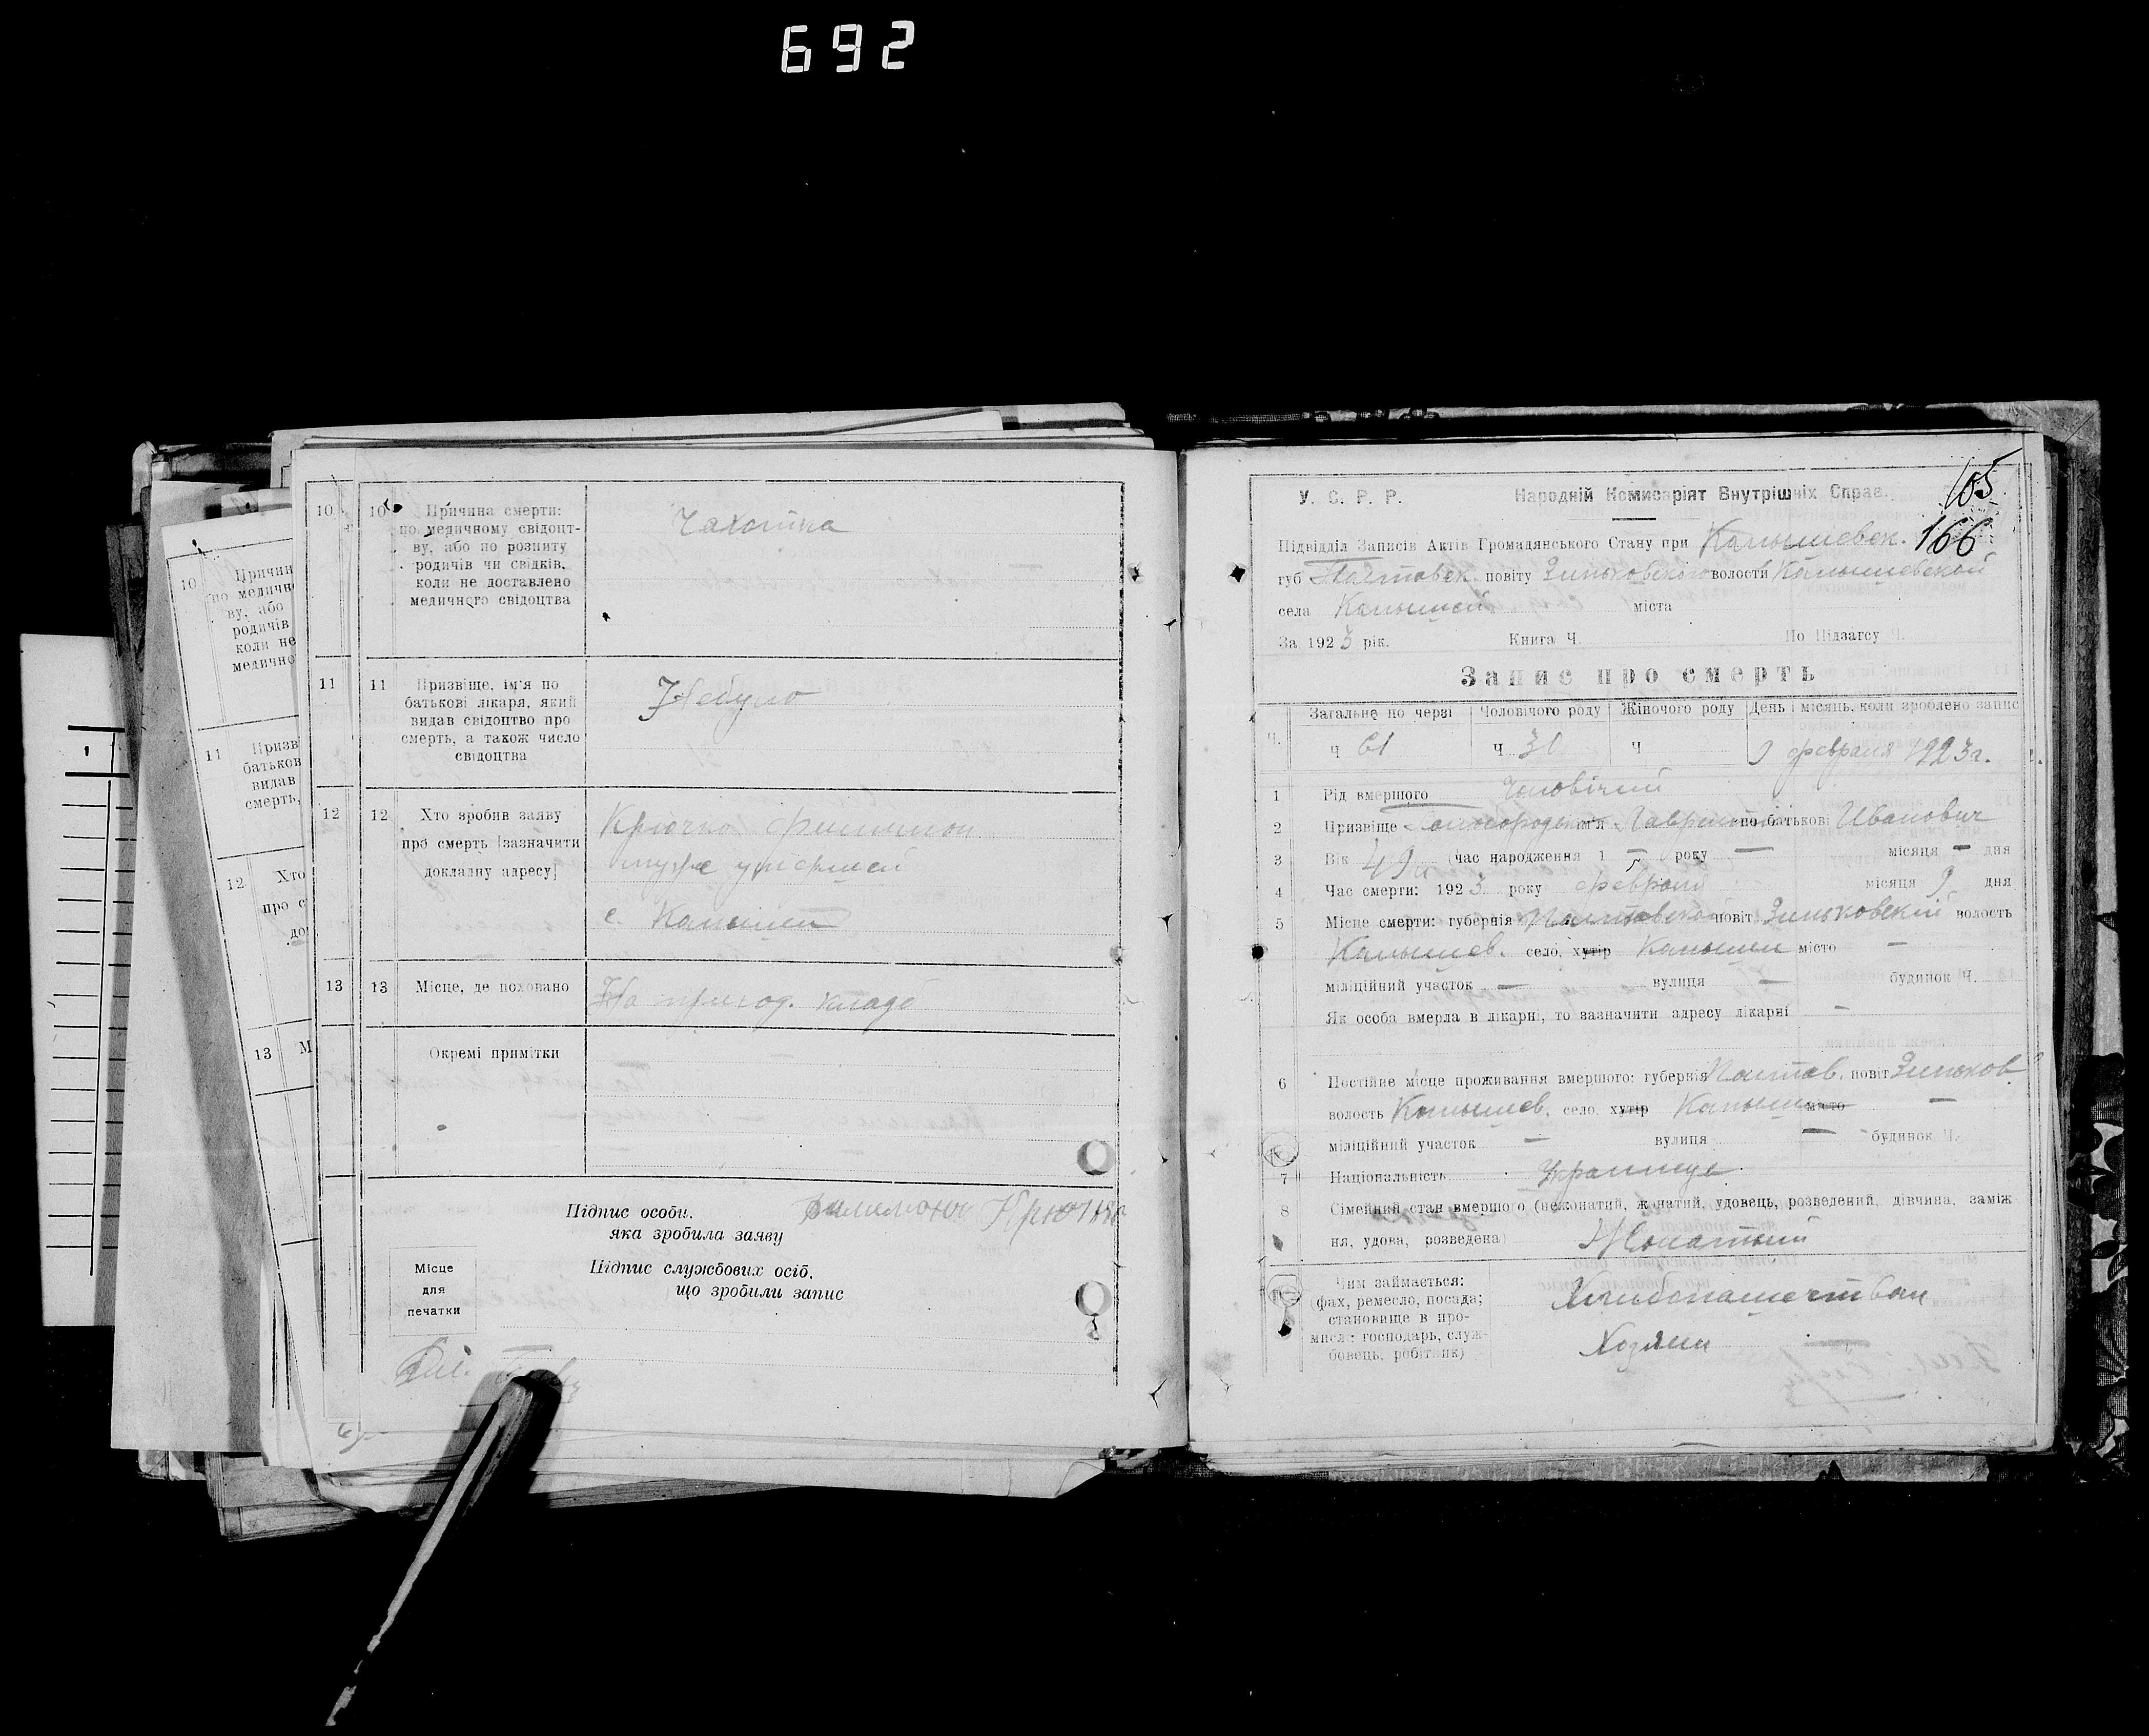 692
10 10 Причина смерти:
по медичному свідоцт-
ву, або по розпиту
родичів чи свідків,
коли не доставлено
медичного свідоцтва
Чахотка
11 11 Призвіще, ім'я по
батькові лікаря, який
видав свідоцтво про
смерть, а також число
свідоцтва
Небуло
12 12 Хто зробив заяву
про смерть (зазначити
докладну адресу)
Крючко Филимон
муже умершей
с. Камыши
13 13 Місце, де поховано
На приход. кладб
Окремі примітки
Підпис особи,
яка зробила заяву
Филимон Крючко
Підпис службових осіб,
що зробили запис
Місце
для
печатки
10 Причин
по медичн
ву, або
родичів
коли не
медично
11 Призв
батьков
видав
смерть,
12 Хто
про с
до
13 М
105
У. С. Р. Р. Народній Комисаріят Внутрішніх Справ.
166
Підвідділ Записів Актів Громадянського Стану при Камышевск.
губ Полтавск. повіту Зиньковского волости Камышевской
села Камышей міста
За 1923 рік. Книга Ч. По Підзагсу Ч.
Запис про смерть
Загальне по черзі Чоловічого роду Жіночого роду День і місяць, коли зроблено запис
Ч. ч 61 ч 31 ч 9 февраля 1923 г.
1 Рід вмершого Чоловічий
2 Призвіще ім'я по батькові Иванович
3 Вік 49 (час народження 1 — року — місяця — дня
4 Час смерти: 1923 року февраля місяця 9 дня
5 Місце смерти: губернія Полтавской повіт Зиньковский волость
Камышев. село, хутір Камыши місто —
міліційний участок — вулиця — будинок Ч.
Як особа вмерла в лікарні, то зазначити адресу лікарні —
6 Постійне місце проживання вмершого: губернія Полтав. повіт Зиньков
волость Камышев. село, хутір Камыши місто —
міліційний участок — вулиця — будинок Ч.
7 Національність Украинец
8 Сімейний стан вмершого (нежонатий, жонатий, удовець, розведений, дівчина, заміж-
ня, удова, розведена) Жонатый
Чим займається:
(фах, ремесло, посада;
становище в про-
мислі: господарь, служ-
бовець, робітник)
Хлебопашеством
Хозяин